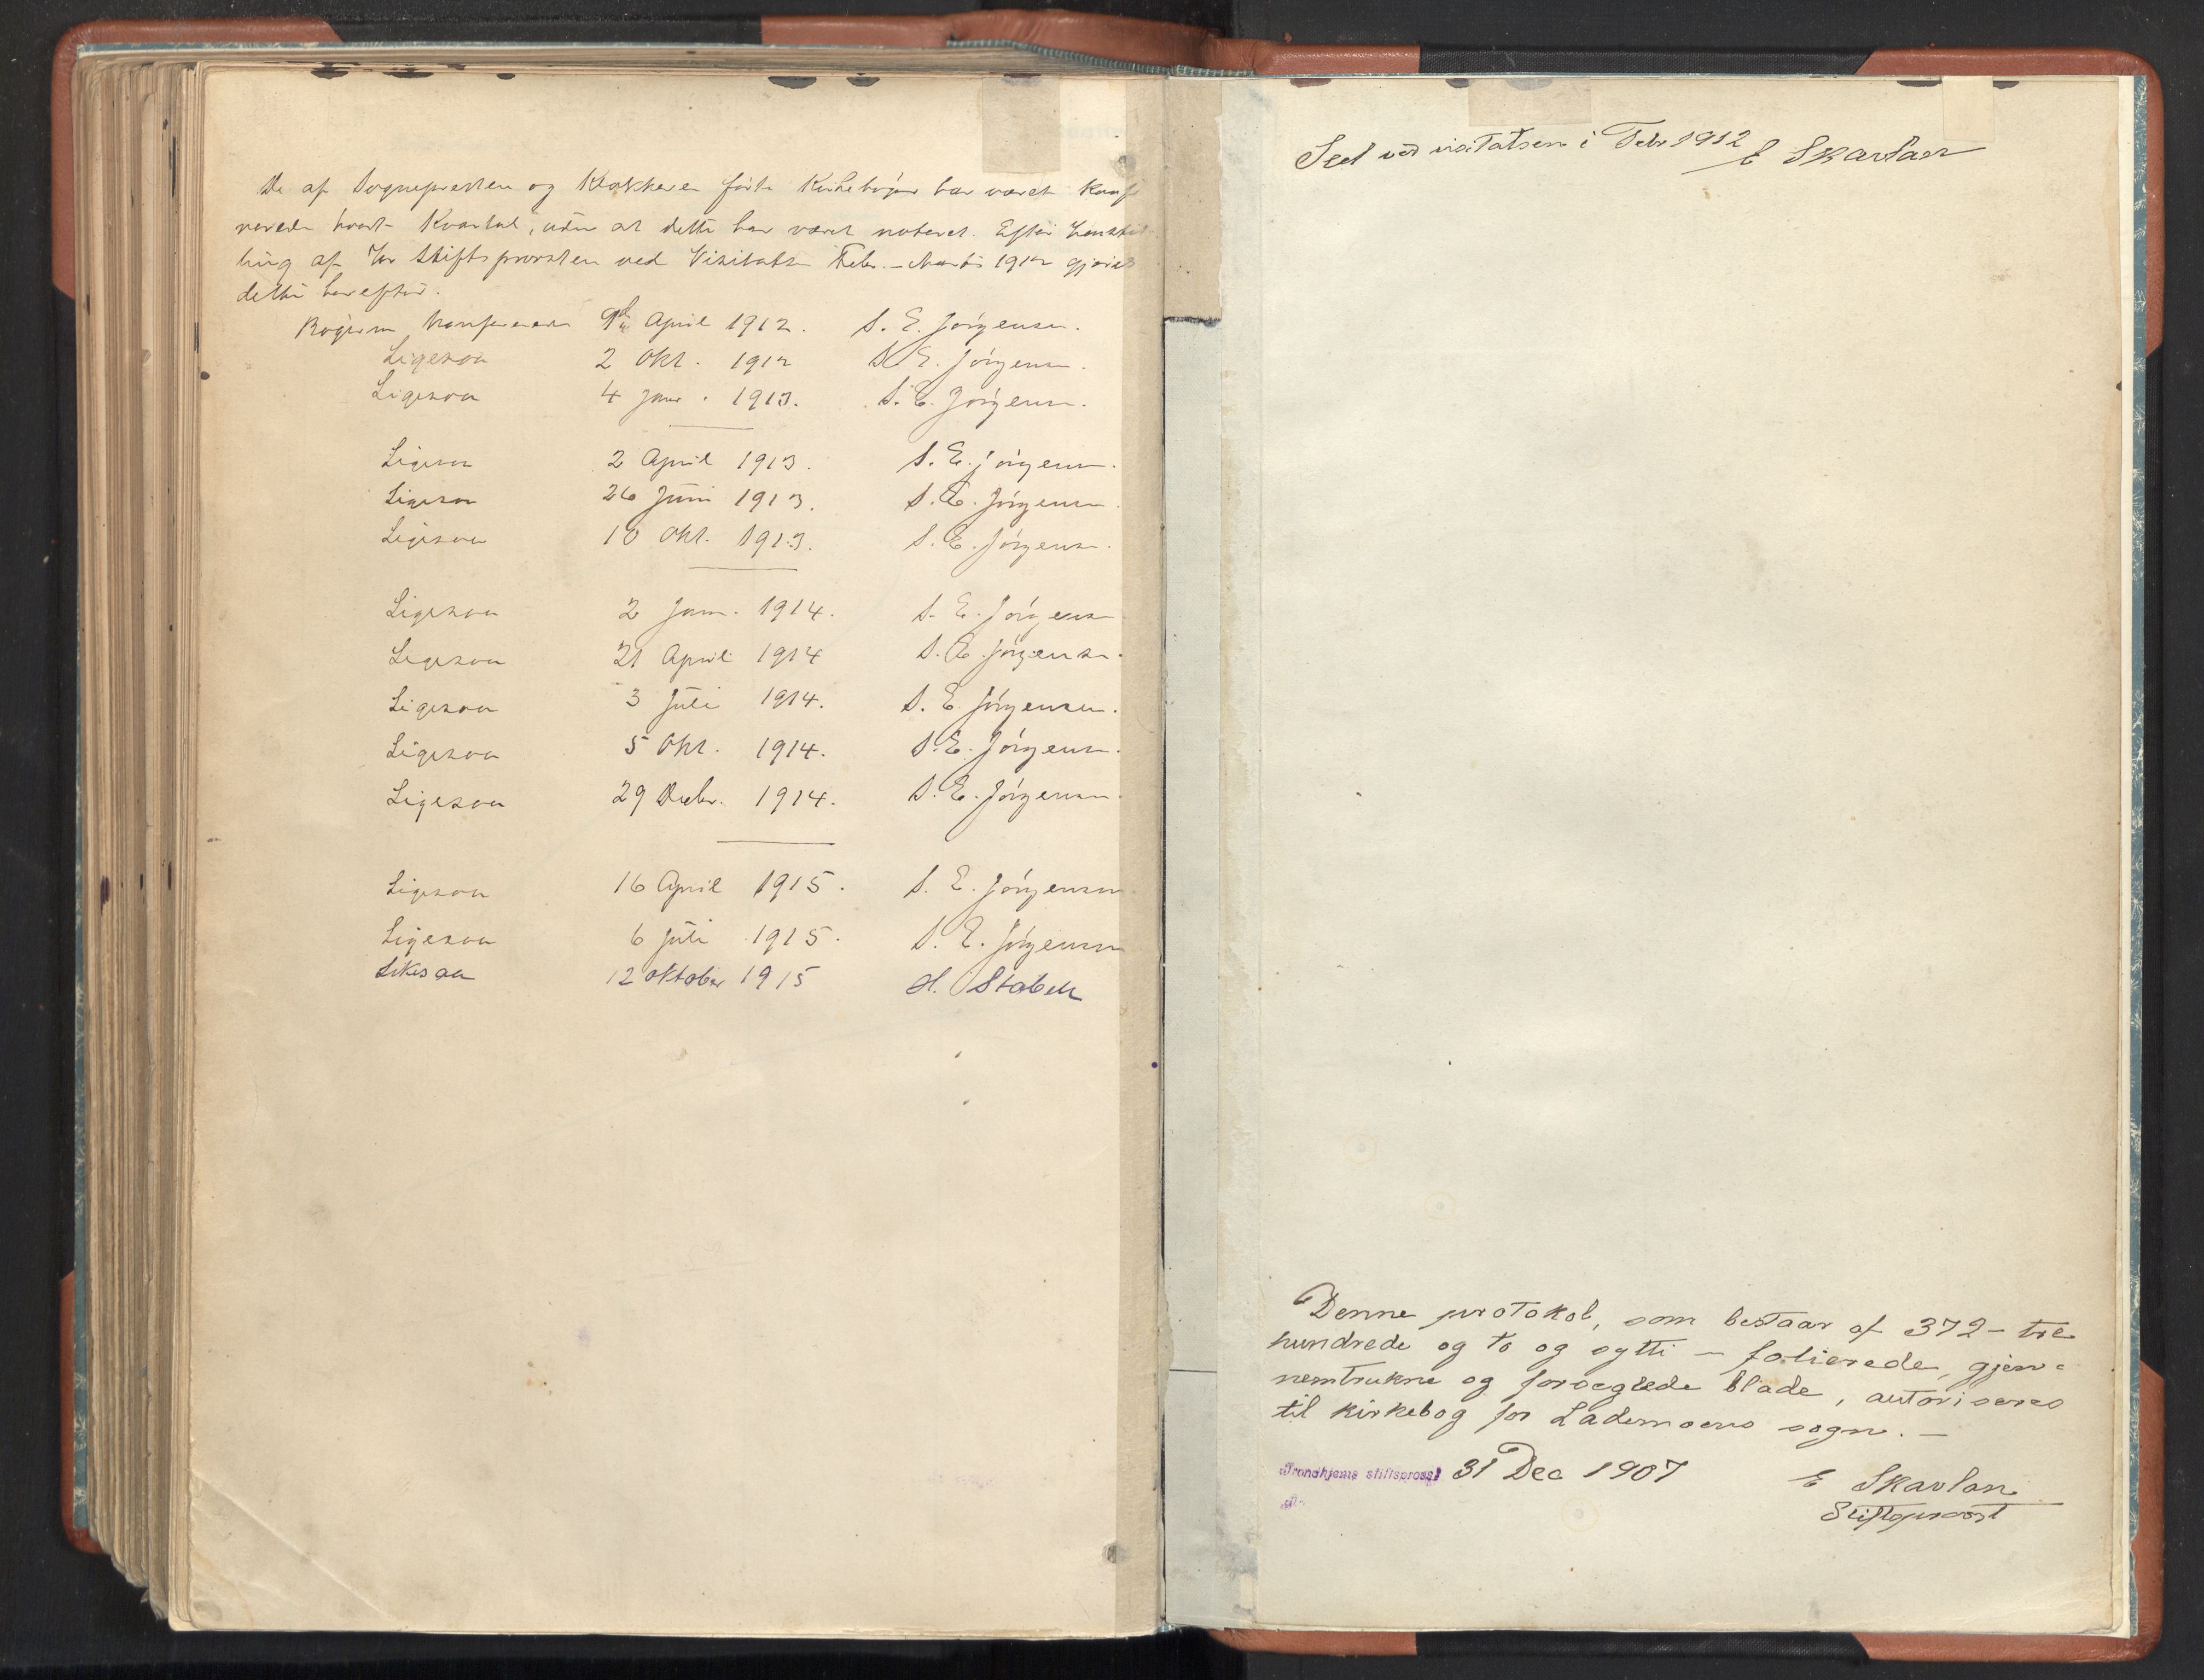 De af Sognepresten og Klokkeren førte Kirkebøger har været konfe
rerede hvert Kvartal, uden at dette har været noteret. Efter Henstil
ling af Hr Stiftsprovsten ved Visitatsen Febr. - Marts 1912 gjøres
dette herefter.
Bøgerne konfererede 9de April 1912. S. E. Jörgensen.
Ligesaa 2 Okt. 1912 S. E. Jörgensen.
Ligesaa 4 Janr. 1913. S. E. Jörgensen.
Ligesaa 2 April 1913. S. E. Jörgensen.
Ligesaa 26 Juni 1913. S. E. Jörgensen.
Ligesaa 10 Okt. 1913. S. E. Jörgensen.
Ligesaa 2 Janr. 1914. S. E. Jörgensen
Ligesaa 21 April 1914 S. E. Jörgensen.
Ligesaa 3 Juli 1914. S. E. Jörgensen.
Ligesaa 5 Okt. 1914. S. E. Jörgensen.
Ligesaa 29 Decbr. 1914. S. E. Jörgensen.
Ligesaa 16 April 1915. S. E. Jörgensen
Ligesaa 6 Juli 1915. S. E. Jörgensen
Likesaa 12 oktober 1915 H. Stabell
Seet ved visitatsen i Febr 1912 E Skavlan
Denne protokol, som bestaar af 372 - tre
hundrede og to og sytti - folierede, gjen-
nemtrukne og forseglede blade, autoriseres
til kirkebog for Lademoens sogn. -
Trondhjems stiftsprosti 31 Dec 1907
E Skavlan
Stiftsprovst